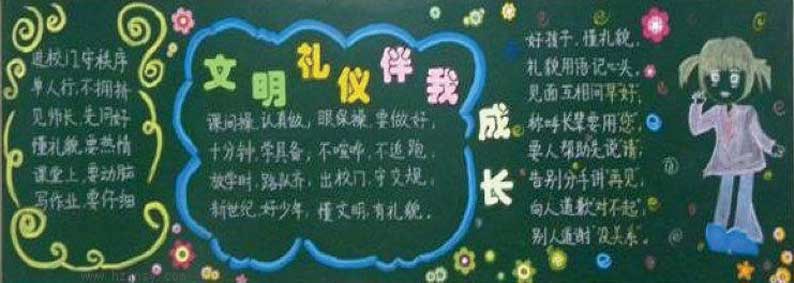 进校门,守秩序
单人行,不拥挤
见师长,先问好
懂礼貌,要热情
课堂上,要动脑
写作业,要仔细
文明礼仪伴我成长
课间操,认真做,眼保操,要做好,
十分钟,学具备,不喧哗,不追跑,
放学时,路队齐,出校门,守交规,
新世纪,好少年,懂文明,有礼貌。
好孩子,懂礼貌,
礼貌用语记心头,
见面互相问早好,
称呼长辈要用您,
要人帮助先说请,
告别分手讲再见,
向人道歉"对不起",
别人道谢"没关系"。